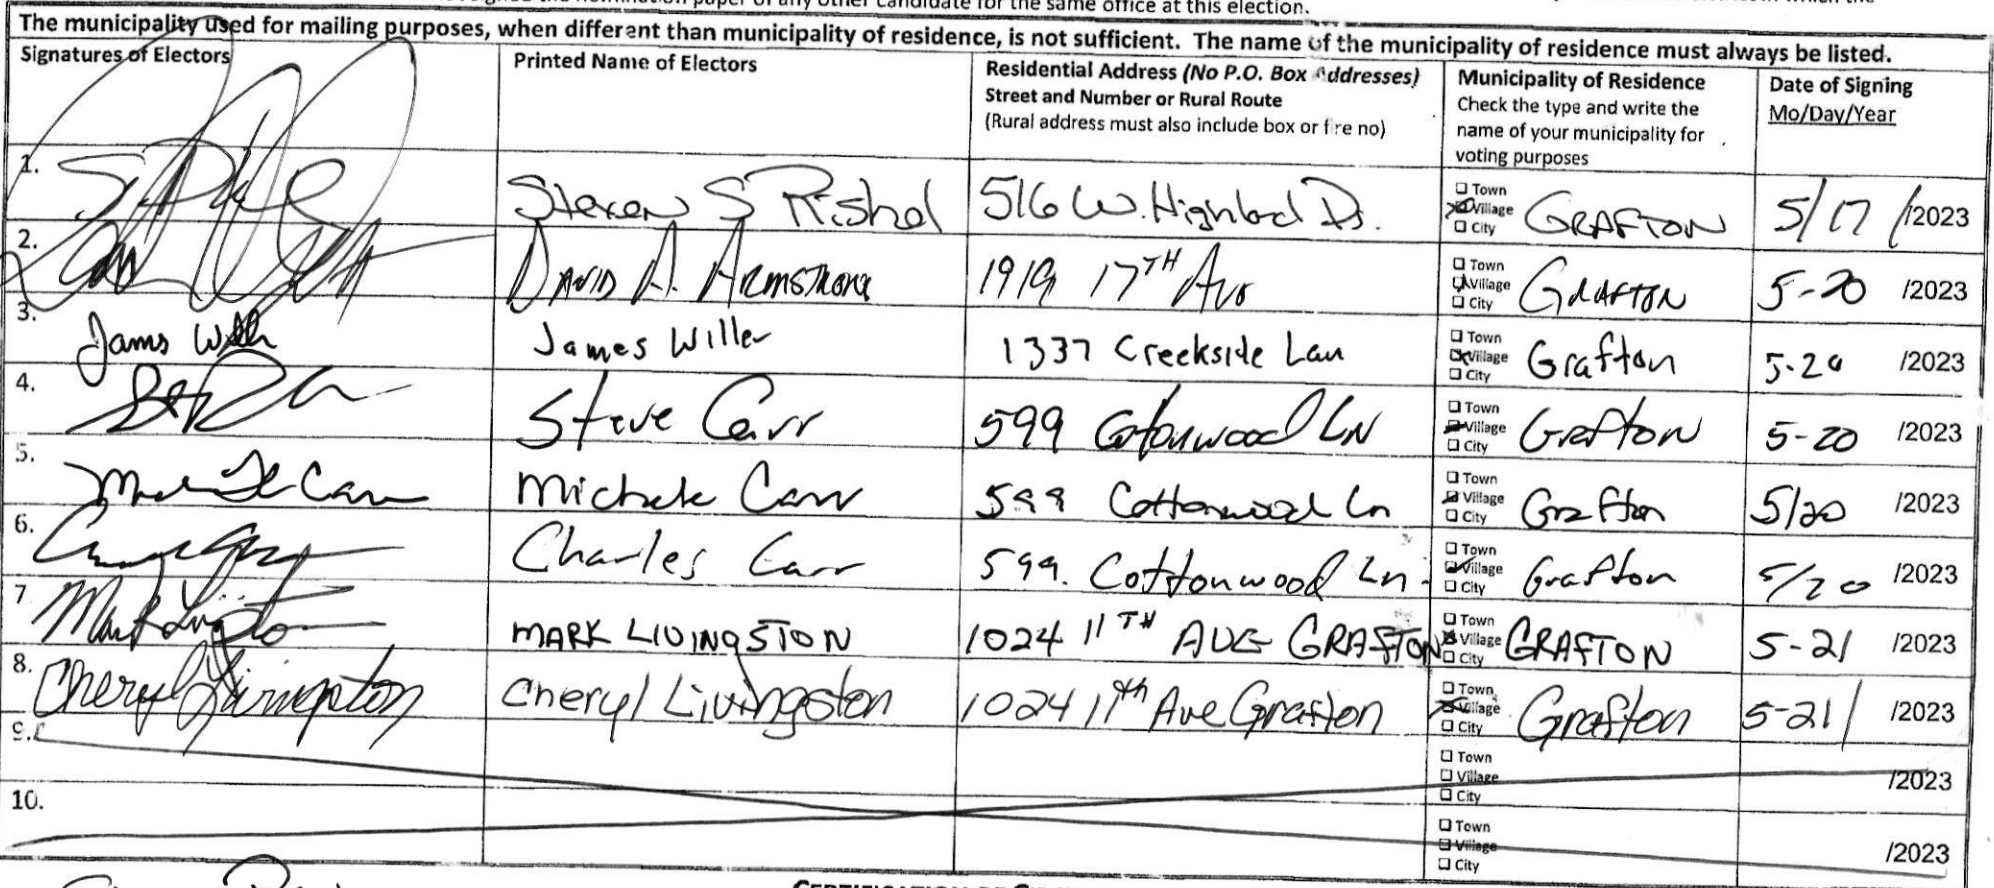 candidate for the same office at this election.
The municipality used for mailing purposes, when different than municipality of residence, is not sufficient. The name of the municipality of residence must always be listed.
Signatures of Electors
Printed Name of Electors
Residential Address (No P.O. Box Addresses)
Street and Number or Rural Route
(Rural address must also include box or fire no)
Municipality of Residence
Check the type and write the
name of your municipality for
voting purposes
Date of Signing
Mo/Day/Year
1. Steven S Rishel 516 W. Highland Dr. Town Village City GRAFTON 5/17 /2023
2. DAVID A. ARMSTRONG 1919 17TH Ave Town Village City GRAFTON 5-20 /2023
3. James Willer James Willer 1337 Creekside Lan Town Village City Grafton 5-20 /2023
4. Steve Carr 599 Cottonwood LN Town Village City Grafton 5-20 /2023
5. Michele Carr 599 Cottonwood Ln Town Village City Grafton 5/20 /2023
6. Charles Carr 599. Cottonwood Ln. Town Village City Grafton 5/20 /2023
7. Mark Livingston MARK LIVINGSTON 1024 11TH AVE GRAFTON Town Village City GRAFTON 5-21 /2023
8. Cheryl Livingston Cheryl Livingston 1024 11th Ave Grafton Town Village City Grafton 5-21/ /2023
9. Town Village City /2023
10. Town Village City /2023